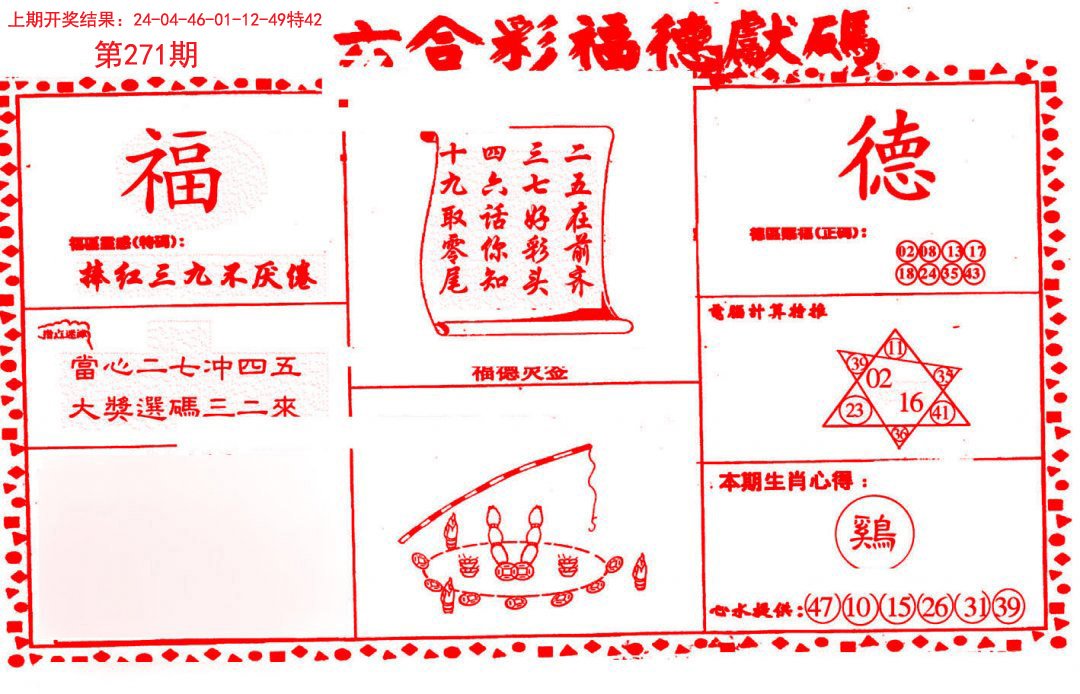 上期开奖结果：24-04-46-01-12-49特42
第271期
六合彩福德獻碼
福
福區靈感(特碼)：
捧红三九不厌倦
指点迷津
當心二七冲四五
大獎選碼三二來
二五在前齐
三七好彩头
四六话你知
十九取零尾
福德灵签
德
德區賜福(正碼)：
02 08 13 17
18 24 35 43
電腦計算精推
11
39
02
35
16
23
41
36
本期生肖心得：
鷄
心水提供：47 10 15 26 31 39